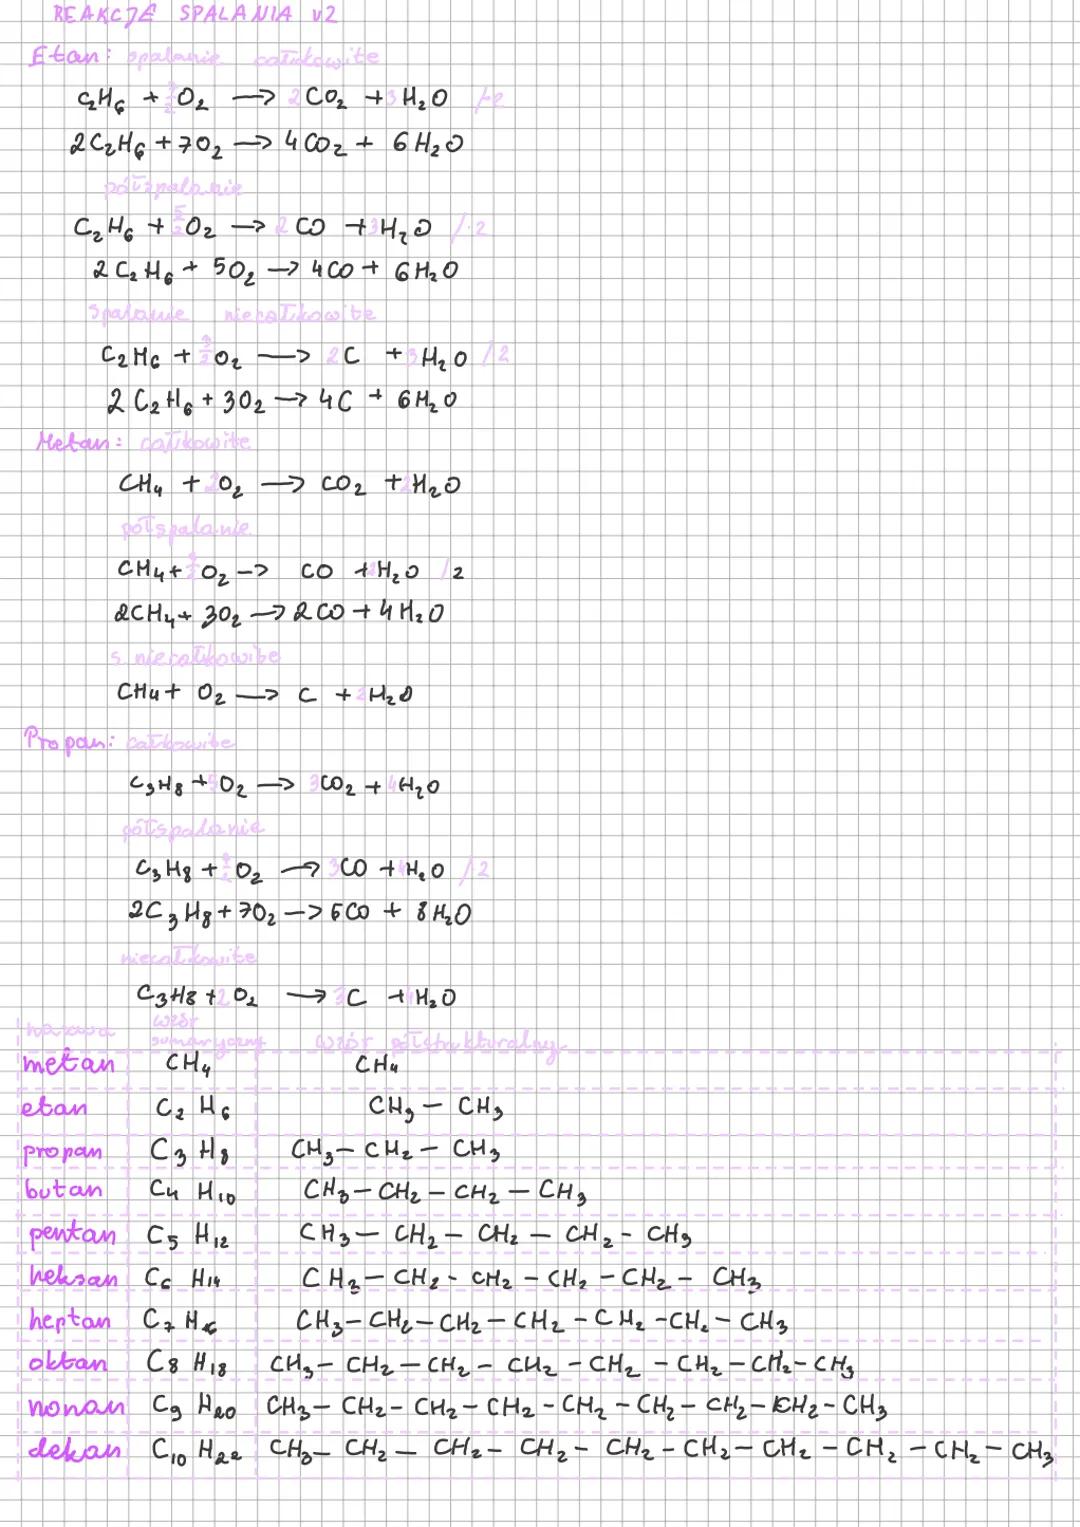 REAKCJE SPALANIA v2
Etan: spalanie całkowite
C₂H₆ + 7/2 O₂ → 2CO₂ + 3H₂O /·2
2C₂H₆ + 7O₂ → 4CO₂ + 6H₂O
półspalanie
C₂H₆ + 5/2 O₂ → 2CO + 3H₂O /·2
2C₂H₆ + 5O₂ → 4CO + 6H₂O
spalanie niecałkowite
C₂H₆ + 3/2 O₂ → 2C + 3H₂O /2
2C₂H₆ + 3O₂ → 4C + 6H₂O
Metan: całkowite
CH₄ + 2O₂ → CO₂ + 2H₂O
półspalanie
CH₄ + 3/2 O₂ → CO + 2H₂O /2
2CH₄ + 3O₂ → 2CO + 4H₂O
s niecałkowite
CH₄ + O₂ → C + 2H₂O
Propan: całkowite
C₃H₈ + 5O₂ → 3CO₂ + 4H₂O
półspalanie
C₃H₈ + 7/2 O₂ → 3CO + 4H₂O /·2
2C₃H₈ + 7O₂ → 6CO + 8H₂O
niecałkowite
C₃H₈ + 2O₂ → 3C + 4H₂O
nazwa wzór sumaryczny wzór półstrukturalny
metan CH₄ CH₄
etan C₂H₆ CH₃ – CH₃
propan C₃H₈ CH₃ – CH₂ – CH₃
butan C₄H₁₀ CH₃ – CH₂ – CH₂ – CH₃
pentan C₅H₁₂ CH₃ – CH₂ – CH₂ – CH₂ – CH₃
heksan C₆H₁₄ CH₃ – CH₂ – CH₂ – CH₂ – CH₂ – CH₃
heptan C₇H₁₆ CH₃ – CH₂ – CH₂ – CH₂ – CH₂ – CH₂ – CH₃
oktan C₈H₁₈ CH₃ – CH₂ – CH₂ – CH₂ – CH₂ – CH₂ – CH₂ – CH₃
nonan C₉H₂₀ CH₃ – CH₂ – CH₂ – CH₂ – CH₂ – CH₂ – CH₂ – CH₂ – CH₃
dekan C₁₀H₂₂ CH₃ – CH₂ – CH₂ – CH₂ – CH₂ – CH₂ – CH₂ – CH₂ – CH₂ – CH₃